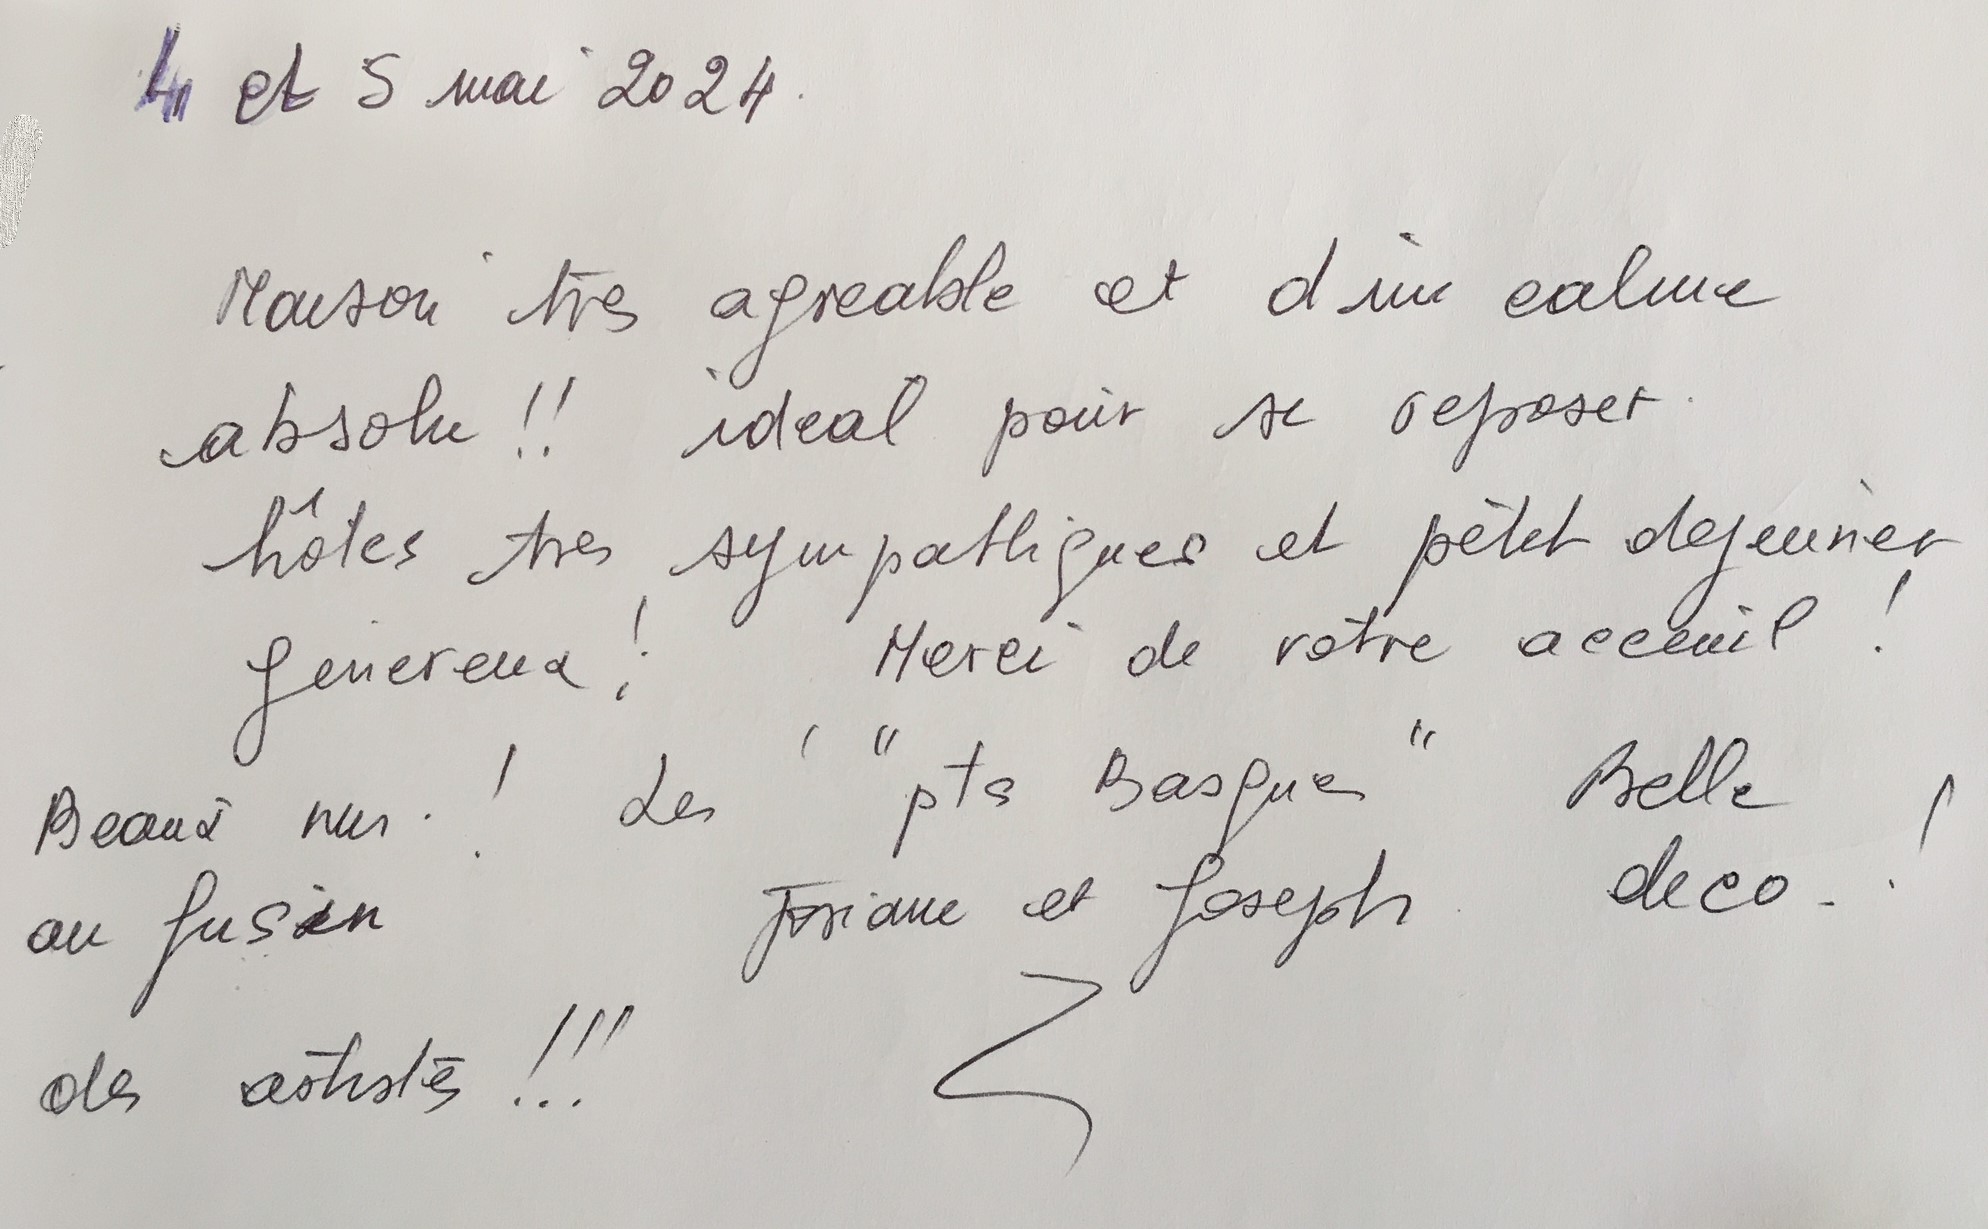 4 et 5 mai 2024.
Maison très agreable et d'un calme
absolu !! idéal pour se reposer.
hôtes tres sympathiques et pétit dejeuner
genereux ! Merci de votre acceuil !
Beaux nus ! Les "pts Basques" Belle
au fusin Josiane et Joseph deco. !
des artistes !!!